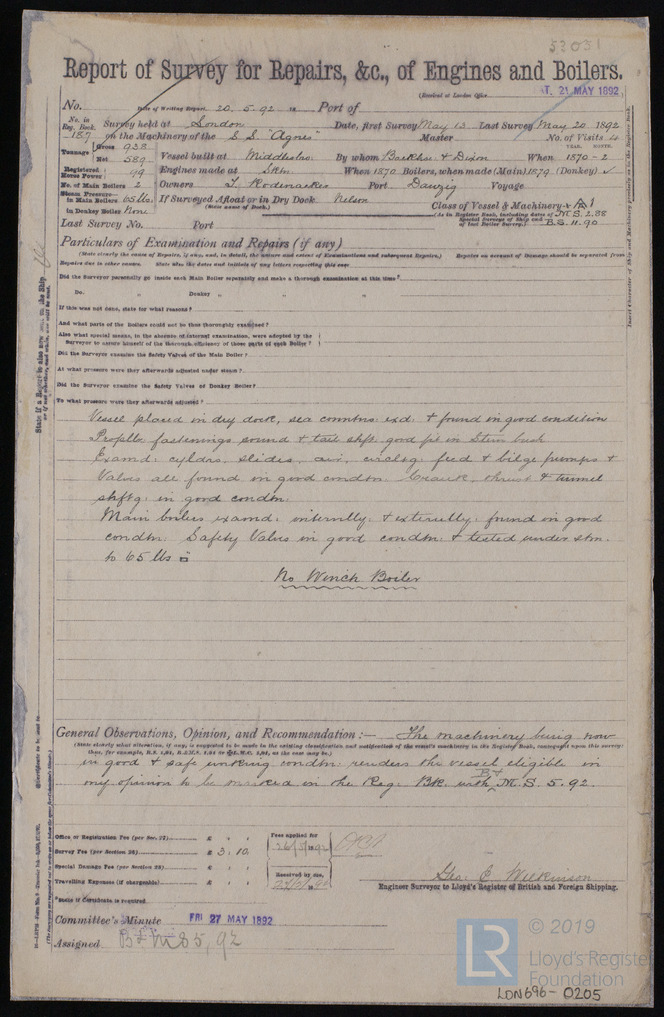 53051
Report of Survey for Repairs, &c., of Engines and Boilers.
(Received at London Office T. 21 MAY 1892
No. Date of Writing Report 20. 5. 92 Port of
No. in Reg. Book. 187 Survey held at London Date, first Survey May 13 Last Survey May 20 1892
on the Machinery of the S.S. "Agnes" Master No. of Visits 4
Tonnage Gross 938 Net 589 Vessel built at Middlesbro. By whom Backhouse & Dixon When 1870-2
Registered Horse Power 99 Engines made at Sktn When 1870 Boilers, when made (Main) 1879 (Donkey) ✓
No. of Main Boilers 2 Owners T. Rodenacker Port Danzig Voyage
Steam Pressure in Main Boilers 65 lbs. If Surveyed Afloat or in Dry Dock Nelson Class of Vessel & Machinery A1
(State name of Dock.) (As in Register Book, including dates of Special Surveys of Ship and of last Boiler Survey.) M.S. 2.88
in Donkey Boiler None B.S. 11.90
Last Survey No. Port
Particulars of Examination and Repairs (if any)
(State clearly the cause of Repairs, if any, and, in detail, the nature and extent of Examinations and subsequent Repairs.) Repairs on account of Damage should be separated from
Repairs due to other causes. State also the dates and initials of any letters respecting this case
Did the Surveyor personally go inside each Main Boiler separately and make a thorough examination at this time?
Do. „ Donkey „ „ „
If this was not done, state for what reasons?
And what parts of the Boilers could not be thus thoroughly examined?
Also what special means, in the absence of internal examination, were adopted by the
Surveyor to assure himself of the thorough efficiency of those parts of each Boiler?
Did the Surveyor examine the Safety Valves of the Main Boiler?
At what pressure were they afterwards adjusted under steam?
Did the Surveyor examine the Safety Valves of Donkey Boiler?
To what pressure were they afterwards adjusted?
Vessel placed in dry dock, sea conntns: exd: & found in good condition
Propller fastenings sound & tail shft: good fit in Stern bush
Examd: cyldrs, slides, air, circltg: feed & bilge pumps &
Valves all found in good condtn: Crank, thrust & tunnel
shftg: in good condtn:
Main boilers examd: internlly: & externlly: found in good
condtn: Safety Valves in good condtn: & tested under stm.
to 65 lbs
No Winch Boiler
General Observations, Opinion, and Recommendation:— The machinery being now
(State clearly what alteration, if any, is suggested to be made in the existing classification and notification of the vessel's machinery in the Register Book, consequent upon this survey:
in good & safe working condtn: renders the vessel eligible in
my opinion to be marked in the Reg: Bk. with B & M.S. 5.92.
Office or Registration Fee (per Sec. 27) £ Fees applied for
Survey Fee (per Section 28) £ 3. 10.
Special Damage Fee (per Section 28) £ Received by me,
Travelling Expenses (if chargeable) £
Geo. E. Wilkinson
Engineer Surveyor to Lloyd's Register of British and Foreign Shipping.
Committee's Minute FRI 27 MAY 1892
Assigned B&MS 5,92
© 2019
LR
Lloyd's Register
Foundation
LDN696-0205